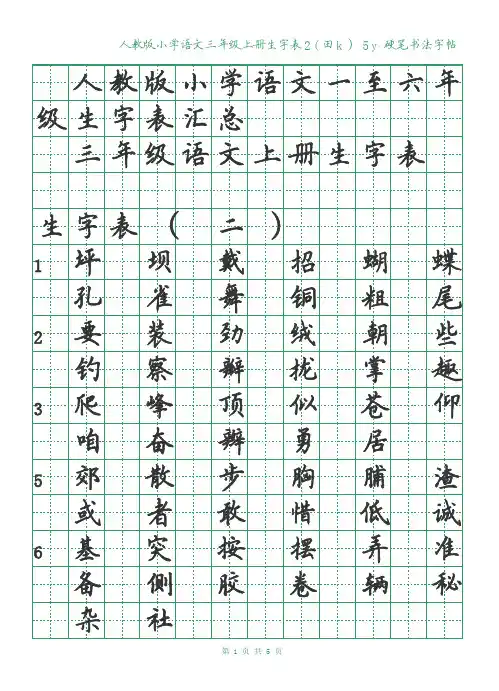 人教版小学语文三年级上册生字表2(田k) 5y 硬笔书法字帖
人教版小学语文一至六年
级生字表汇总
三年级语文上册生字表
生字表 ( 二 )
1 坪 坝 戴 招 蝴 蝶
孔 雀 舞 铜 粗 尾
2 要 装 劲 绒 朝 些
钓 察 瓣 拢 掌 趣
3 爬 峰 顶 似 苍 仰
咱 奋 辫 勇 居
5 郊 散 步 胸 脯 渣
或 者 敢 惜 低 诚
6 基 突 按 摆 弄 准
备 侧 胶 卷 辆 秘
杂 社
第 1 页 共 5 页